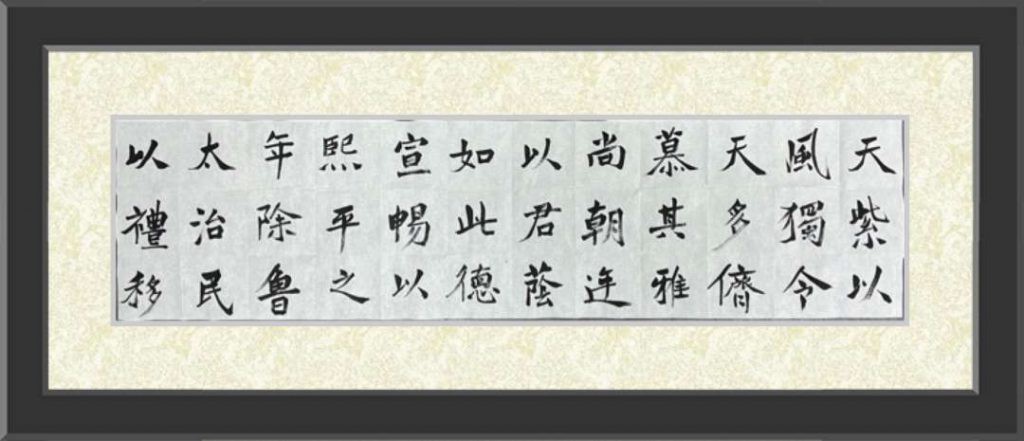 天紫以
風獨令
天多儕
慕其雅
尚朝廷
以君蔭
如此德
宣暢以
熙平之
年除魯
太治民
以禮移